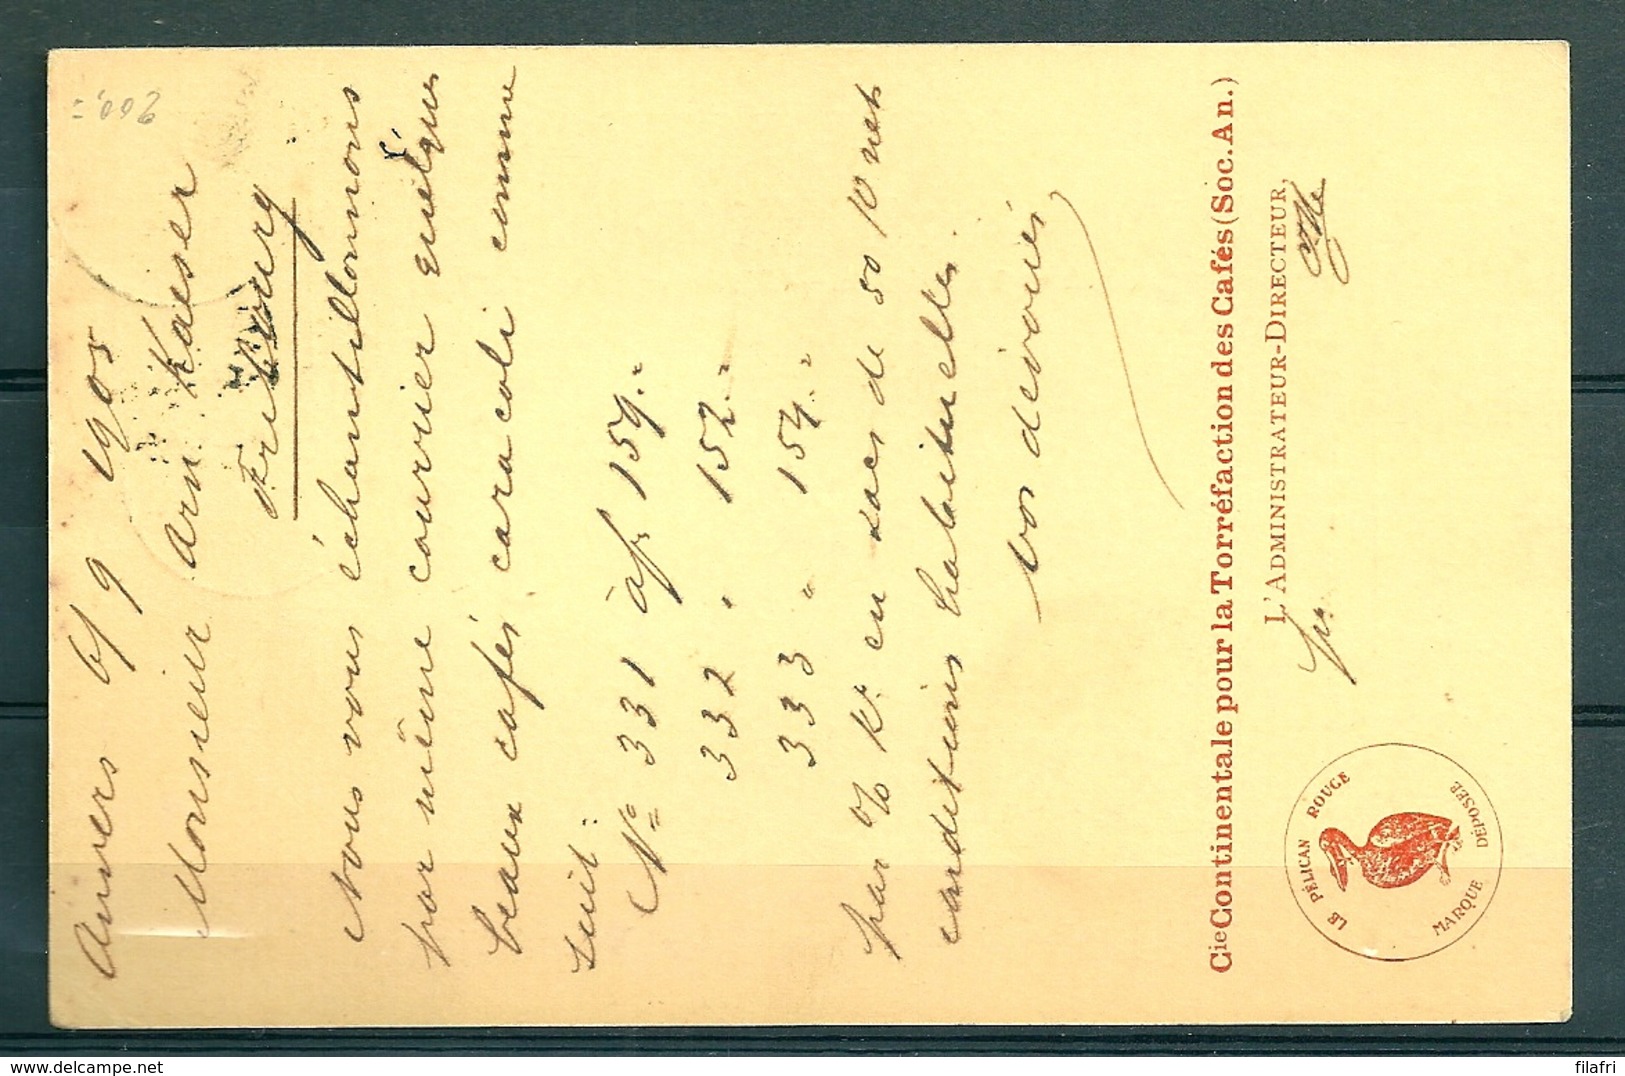 Anvers 6/9 1905
Monsieur Arn. Kaeser
Fribourg
Nous vous échantillonnons
par même courrier quelques
beaux cafés caracoli comme
suit:
N° 331 à fr 154.=
332 " 152.=
333 " 154.=
par % k° en sacs de 50 k° net
conditions habituelles.
Vos dévoués
Cie Continentale pour la Torréfaction des Cafés (Soc. An.)
L'ADMINISTRATEUR-DIRECTEUR,
pr
LE PÉLICAN ROUGE
MARQUE DÉPOSÉE
filafri